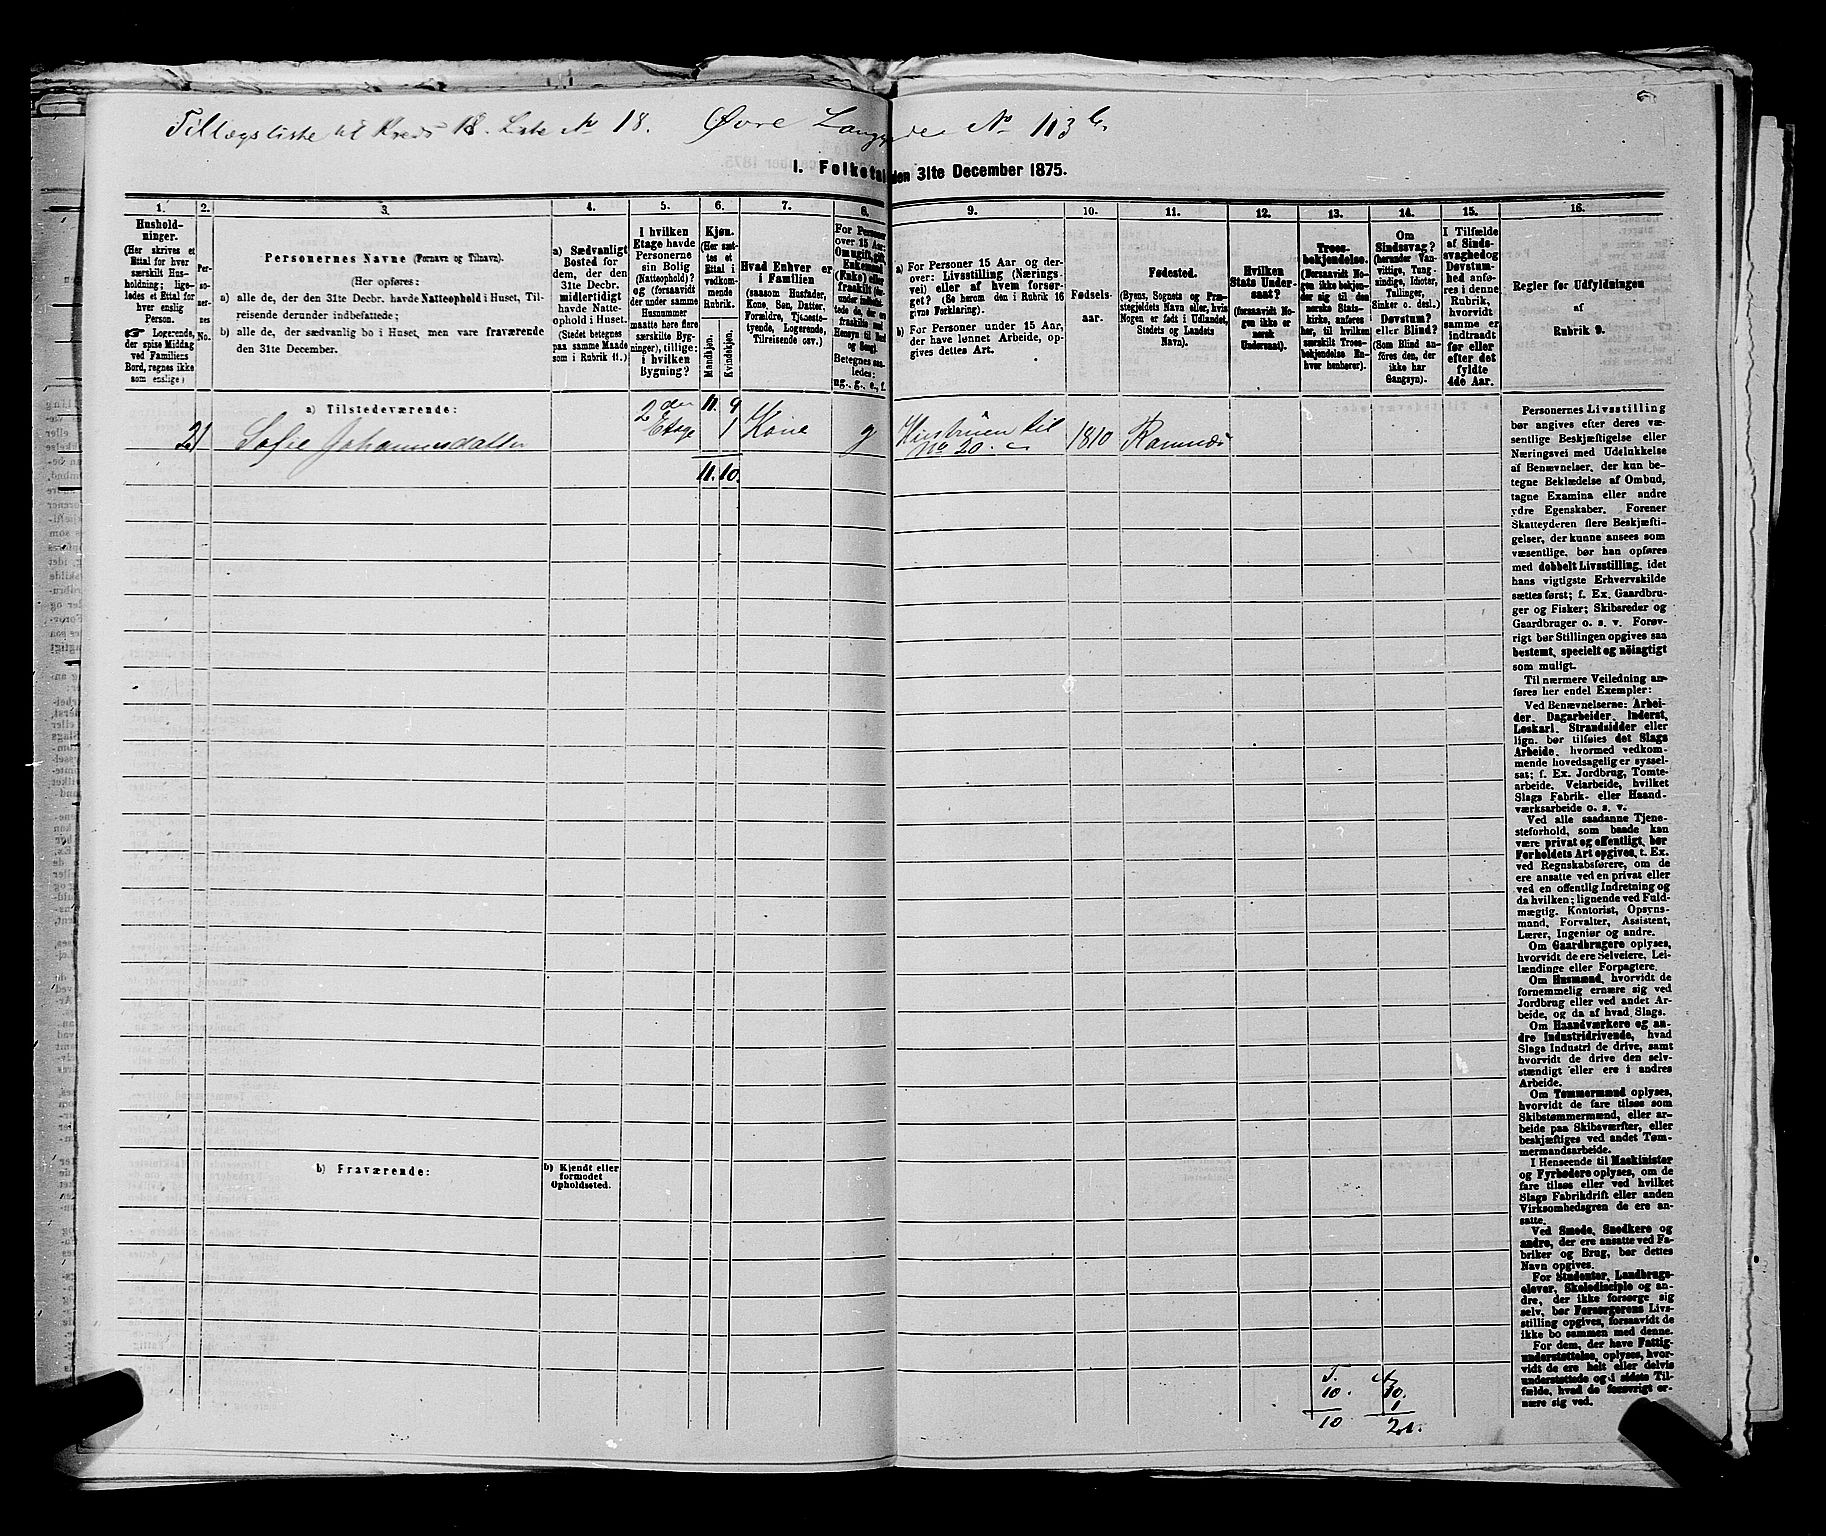 Tillægsliste til Kreds 18. Liste No 18. Øvre Langgade No 113 b.
I. Folketal den 31te December 1875.
1.
Hushold-
ninger.
(Her skrives et
Ettal for hver
særskilt Hus-
holdning; lige-
ledes et Ettal for
hver enslig
Person.
Logerende,
der spise Middag
ved Familiens
Bord, regnes ikke
som enslige)
2.
Per-
so-
ner-
nes
No.
3.
Personernes Navne (Fornavn og Tilnavn).
(Her opføres:
a) alle de, der den 31te Decbr. havde Natteophold i Huset, Til-
reisende derunder indbefattede;
b) alle de, der sædvanlig bo i Huset, men vare fraværende
den 31te December.
4.
a) Sædvanligt
Bosted for
dem, der den
31te Decbr.
midlertidigt
havde Natte-
ophold i Huset.
(Stedet betegnes
paa samme Maade
som i Rubrik 11.)
5.
I hvilken
Etage havde
Personerne
sin Bolig
(Natteophold)?
og (forsaavidt
der under samme
Husnummer
maatte høre flere
særskilte Byg-
ninger), tillige:
i hvilken
Bygning?
6.
Kjøn.
(Her sæt-
tes et
Ettal i
vedkom-
mende
Rubrik.
Mandkjøn.
Kvindekjøn.
7.
Hvad Enhver er
i Familien
(saasom Husfader,
Kone, Søn, Datter,
Forældre, Tjeneste-
tyende, Logerende,
Tilreisende osv.)
8.
For Personer
over 15 Aar:
Om ugift, gift,
Enkemand
(Enke) eller
fraskilt
Betegnes saa-
ledes:
ug., g., e., f.
9.
a) For Personer 15 Aar og der-
over: Livsstilling (Nærings-
vei) eller af hvem forsør-
get? (Se herom den i Rubrik 16
givne Forklaring).
b) For Personer under 15 Aar,
der have lønnet Arbeide, op-
gives dettes Art.
10.
Fødsels-
aar.
11.
Fødested.
(Byens, Sognets og Præ-
stegjeldets Navn eller, hvis
Nogen er født i Udlandet,
Stedets og Landets
Navn).
12.
Hvilken
Stats Under-
saat?
(forsaavidt No-
gen ikke er
norsk
Undersaat).
13.
Troes-
bekjendelse.
(Forsaavidt No-
gen ikke bekjen-
der sig til den
norske Stats-
kirke, anføres
her, til hvilken
særskilt Troes-
bekjendelse En-
hver henhører).
14.
Om
Sindssvag?
(herunder Van-
vittige, Tung-
sindige, Idioter,
Tullinger,
Sinker o. desl.)
Døvstum?
eller Blind?
(Som Blind an-
føres den, der
ikke har
Gangsyn).
15.
I Tilfælde
af Sinds-
svaghed og
Døvstum-
hed anfø-
res i denne
Rubrik,
hvorvidt
samme er
indtraadt
før eller
efter det
fyldte
4de Aar.
16.
Regler for Udfyldningen
af
Rubrik 9.
a) Tilstedeværende:
2den 11. 9
21 Sofie Johannesdatter Etage 1 Kone g Husbruen til No 20. 1810 Ramnæs
11. 10.
b) Fraværende:
b) Kjendt eller
formodet
Opholdssted.
Personernes Livsstilling
bør angives efter deres væ-
sentlige Beskjæftigelse eller
Næringsvei med Udelukkelse
af Benævnelser, der kun be-
tegne Beklædelse af Ombud,
tagne Examina eller andre
ydre Egenskaber. Forener
Skatteyderen flere Beskjæfti-
gelser, der kunne ansees som
væsentlige, bør han opføres
med dobbelt Livsstilling, idet
hans vigtigste Erhvervskilde
sættes først; f. Ex. Gaardbru-
ger og Fisker; Skibsreder og
Gaardbruger o. s. v. Forøv-
rigt bør Stillingen opgives saa
bestemt, specielt og nöiagtigt
som muligt.
Til nærmere Veiledning an-
føres her endel Exempler:
Ved Benævnelserne: Arbei-
der, Dagarbeider, Inderst,
Løskarl, Strandsidder eller
lign. bør tilføies det Slags
Arbeide, hvormed vedkom-
mende hovedsagelig er syssel-
sat; f. Ex. Jordbrug, Tomte-
arbeide, Veiarbeide, hvilket
Slags Fabrik- eller Haand-
værksarbeide o. s. v.
Ved alle saadanne Tjene-
steforhold, som baade kan
være privat og offentligt, bør
Forholdets Art opgives, t. Ex.
ved Regnskabsførere, om de
ere ansatte ved en privat eller
ved en offentlig Indretning og
da hvilken; lignende ved Fuld-
mægtig, Kontorist, Opsyns-
mand, Forvalter, Assistent,
Lærer, Ingeniør og andre.
Om Gaardbrugere oplyses,
hvorvidt de ere Selveiere, Lei-
lændinge eller Forpagtere.
Om Husmænd, hvorvidt de
fornemmelig ernære sig ved
Jordbrug eller ved andet Ar-
beide, og da af hvad Slags.
Om Haandværkere og an-
dre Industridrivende, hvad
Slags Industri de drive, samt
hvorvidt de drive den selv-
stændigt eller ere i andres
Arbeide.
Om Tømmermænd oplyses,
hvorvidt de fare tilsøs som
Skibstømmermænd, eller ar-
beide paa Skibsværfter, eller
beskjæftiges ved andet Tøm-
mermandsarbeide.
I Henseende til Maskinister
og Fyrbødere oplyses, om de
fare tilsøs eller ved hvilket
Slags Fabrikdrift eller anden
Virksomhedsgren de ere an-
satte.
Ved Smede, Snedkere og
andre, der ere ansatte ved Fa-
briker og Brug, bør dettes
Navn opgives.
For Studenter, Landbrugs-
elever, Skoledisciple og an-
dre, der ikke forsørge sig
selv, bør Forsørgerens Livs-
stilling opgives, forsaavidt de
ikke bo sammen med denne.
For dem, der have Fattig-
understøttelse, oplyses, hvor-
vidt de ere helt eller delvis
understøttede og i sidste Til-
fælde, hvad de forøvrigt er-
nære sig ved.
10. 10.
1
10 21.